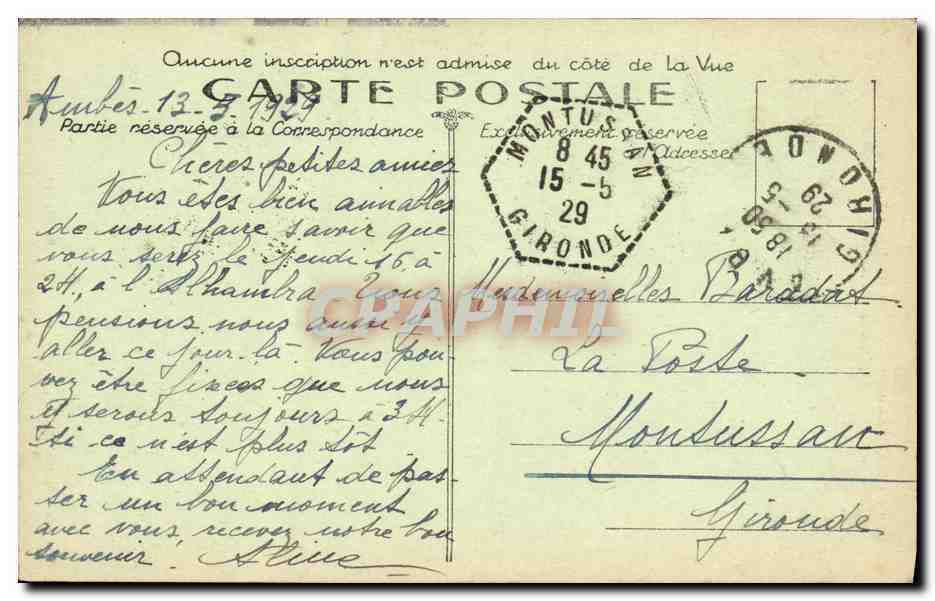 Aucune inscription n'est admise du côté de la Vue
CARTE POSTALE
Ambès - 13-5 1929
Partie réservée à la Correspondance
Exclusivement réservée
l'Adresse
Chères petites amies
Vous êtes bien aimables
de nous faire savoir que
vous serez le Jeudi 16 à
2H, à l'Alhambra Nous
pensions nous aussi y
aller ce jour-là. Vous pou-
vez être fixées que nous
y serons toujours à 3H.
si ce n'est plus tôt
En attendant de pas-
ser un bon moment
avec vous, recevez notre bon
souvenir. Aline
MONTUSSAN
8 45
15 - 5
29
GIRONDE
GIRONDE
18 50
13 - 5
29
Mademoiselles Baradat
La Poste
Montussan
Gironde
CRAPHIL